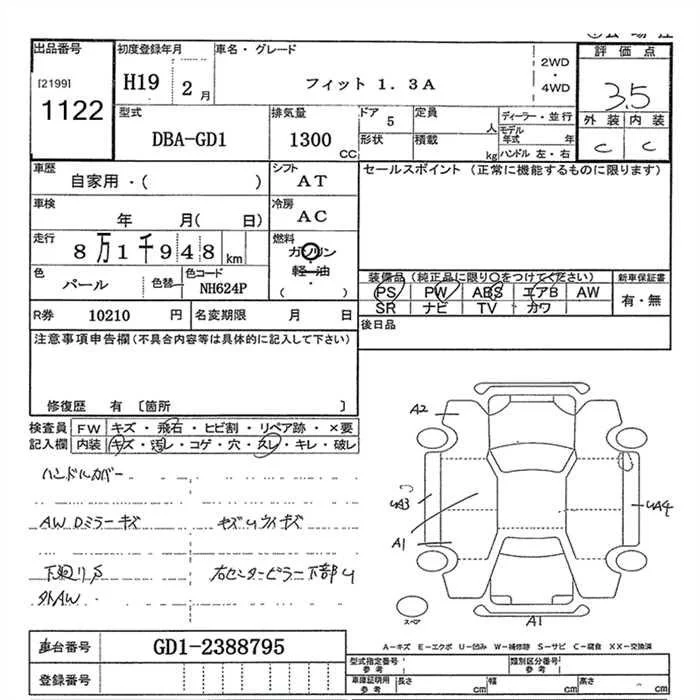 出品番号
[2199]
1122
初度登録年月
H19 2月
車名・グレード
フィット 1.3A
2WD
・
4WD
評価点
3.5
外装 内装
C C
型式
DBA-GD1
排気量
1300 CC
ドア 5
形状
定員 人
積載 kg
ディーラー・並行
モデル年式 年
ハンドル 左・右
車歴
自家用・( )
シフト
AT
セールスポイント (正常に機能するものに限ります)
車検
年 月( 日)
冷房
AC
走行
8万1千948km
燃料
ガソリン
・
軽油
・
( )
色
パール
色替
色コード
NH624P
装備品(純正品に限り○をつけてください)
PS PW ABS エアB AW
SR ナビ TV カワ
新車保証書
有・無
R券 10210 円
名変期限 月 日
後日品
注意事項申告欄(不具合内容等は具体的に記入して下さい)
修復歴 有 [箇所 ]
検査員
記入欄
FW キズ・飛石・ヒビ割・リペア跡・×要
内装 キズ・汚レ・コゲ・穴・スレ・キレ・破レ
ハンドルカバー
AW Dミラーキズ
下廻りS
外AW
右センターピラー下部U
A2
UA3
A1
UA4
A1
スペア
車台番号
GD1-2388795
登録番号
A-キズ E-エクボ U-凹み W-補修跡 S-サビ C-腐食 XX-交換済
型式指定番号
参考
類別区分番号
参考
車庫証明用
参考
長さ cm
幅 cm
高さ cm